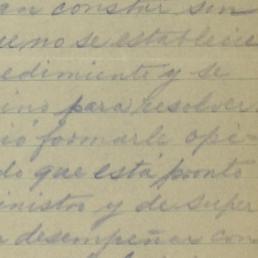 an constar sin
que no se establece
edimiento y se
ino para resolver
ió formarle opi-
do que está pronto
inistro y de super
a desempeñar con